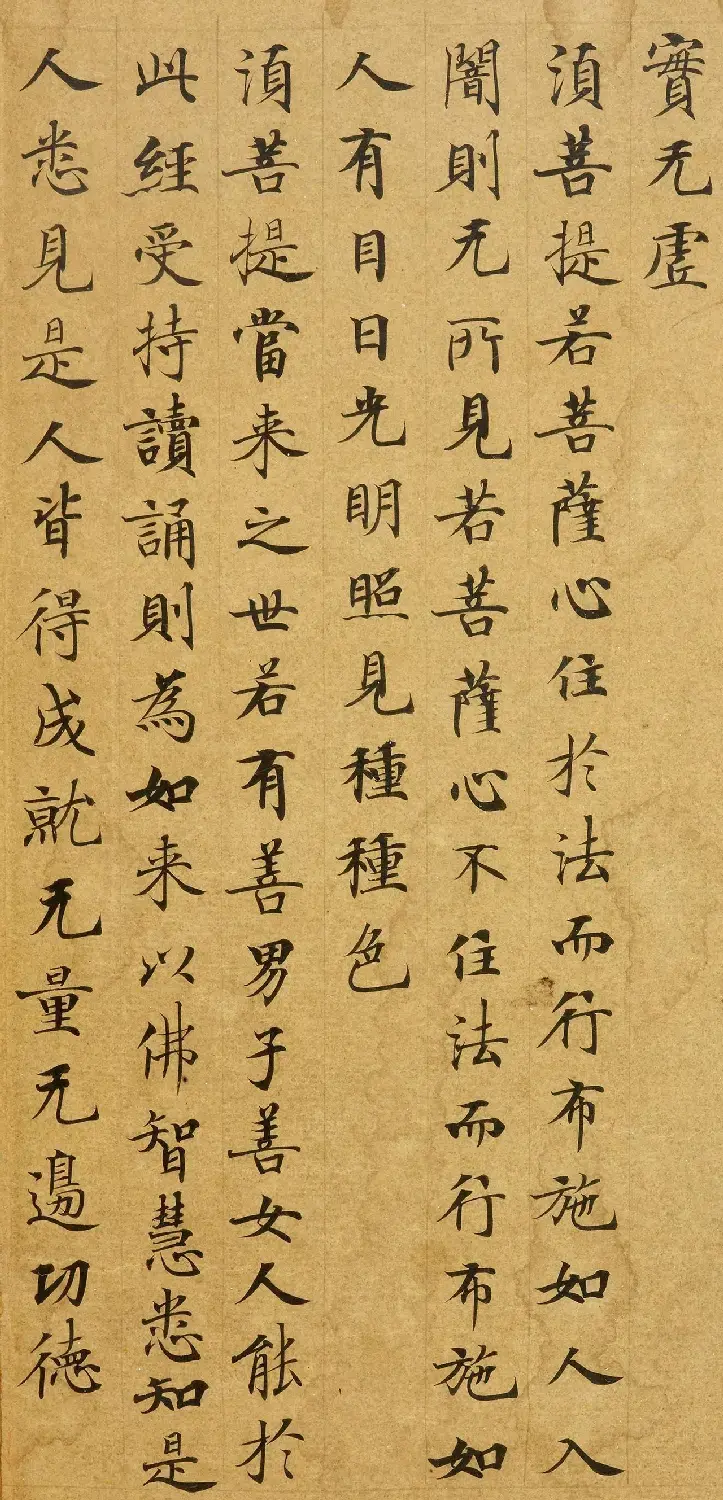 實无虛
湏菩提若菩薩心住於法而行布施如人入
闇則无所見若菩薩心不住法而行布施如
人有目日光明照見種種色
湏菩提當来之世若有善男子善女人能於
此經受持讀誦則為如来以佛智慧悉知是
人悉見是人皆得成就无量无邊功德